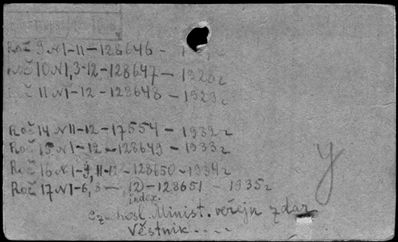 Roč 9 N1-11-128646-
Roč 10 N1,3-12-128647-1928 г
Roč 11 N1-12-128648-1929 г
Roč 14 N11-12-17554-1932 г
Roč 15 N1-12-128649-1933 г
Roč 16 N1-9,11-12-128650-1934 г
Roč 17 N1-6,8-12-128651-1935 г
index.
Czechosl. Minist. veřejn zdar
Věstnik....